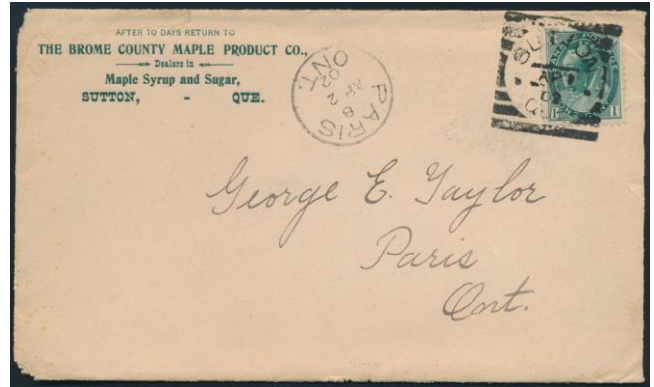 AFTER 10 DAYS RETURN TO
THE BROME COUNTY MAPLE PRODUCT CO.,
Dealers in
Maple Syrup and Sugar,
SUTTON, - QUE.
PARIS
ONT.
AP 2
8
02
SUTTON
AP
QUE
1
George E. Taylor
Paris
Ont.